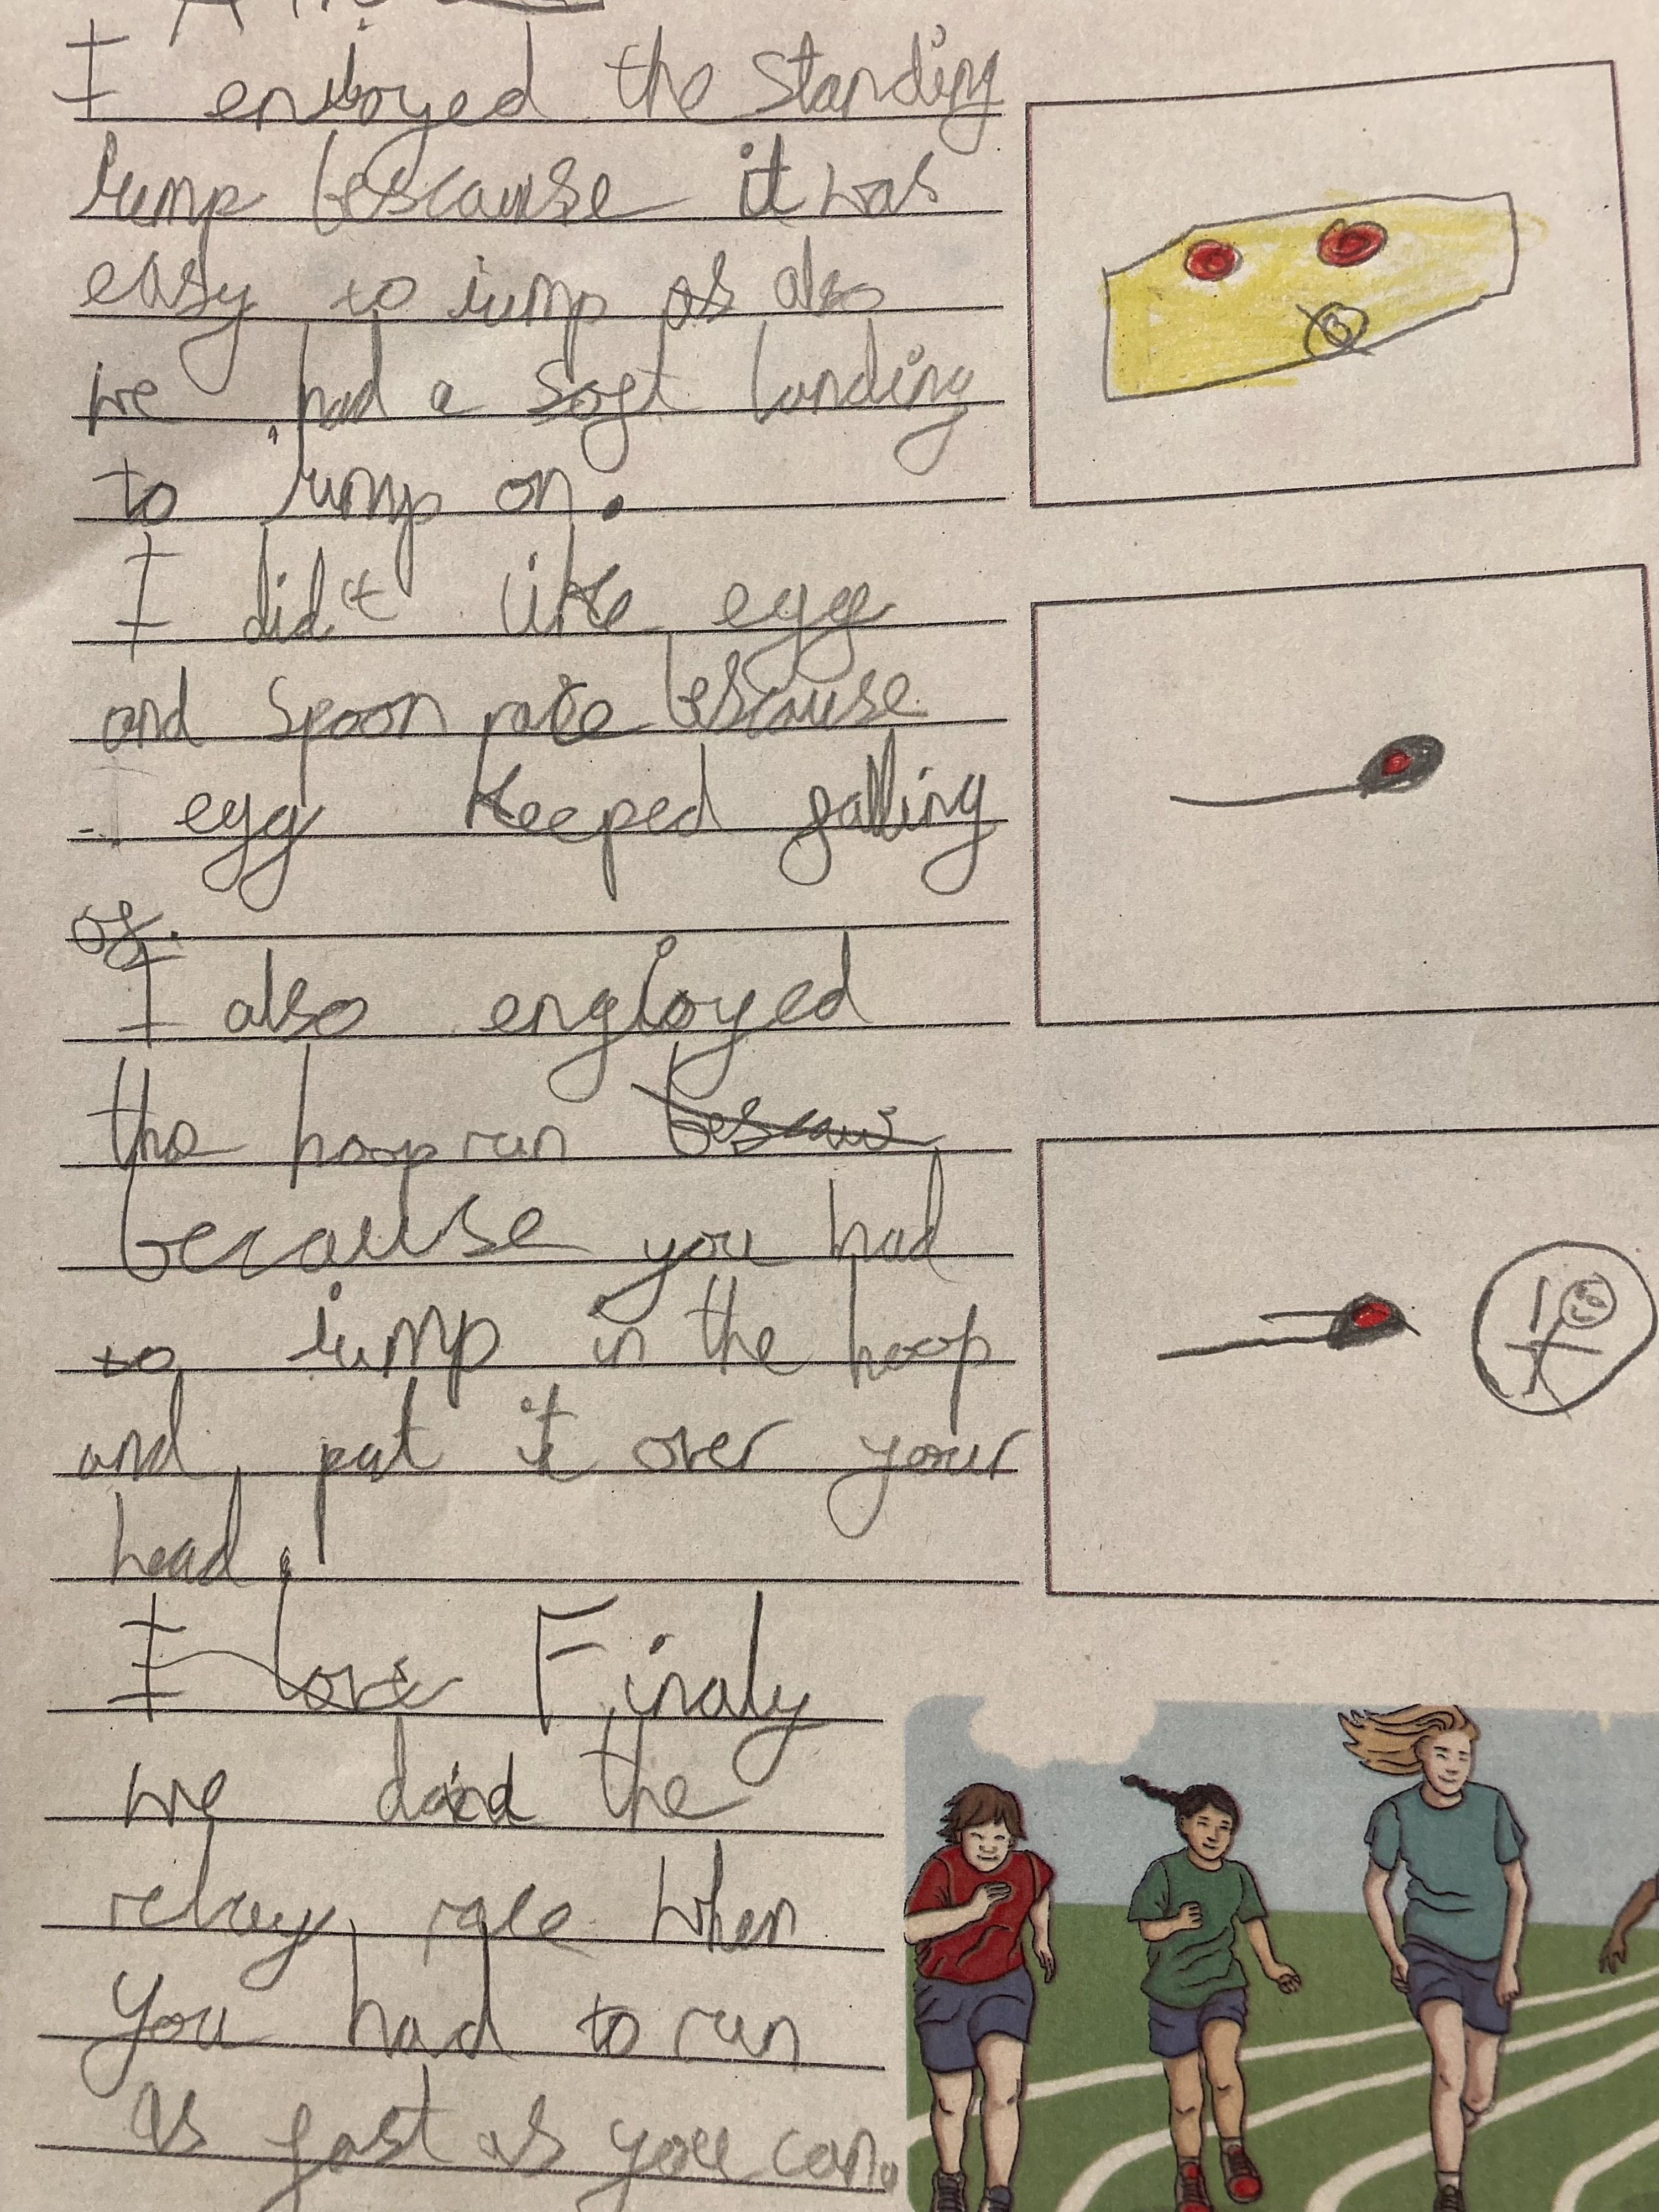 I enjoyed the standing
jump bescause it was
easy to jump as also
we had a soft landing
to jump on.
I did't like egg
and spoon race bescause
egg keeped falling
of.
I also engjoyed
the hoop run bescaus
because you had
to jump in the hoop
and put it over your
head.
I love Finaly
we did the
relay race when
you had to run
as fast as you can.